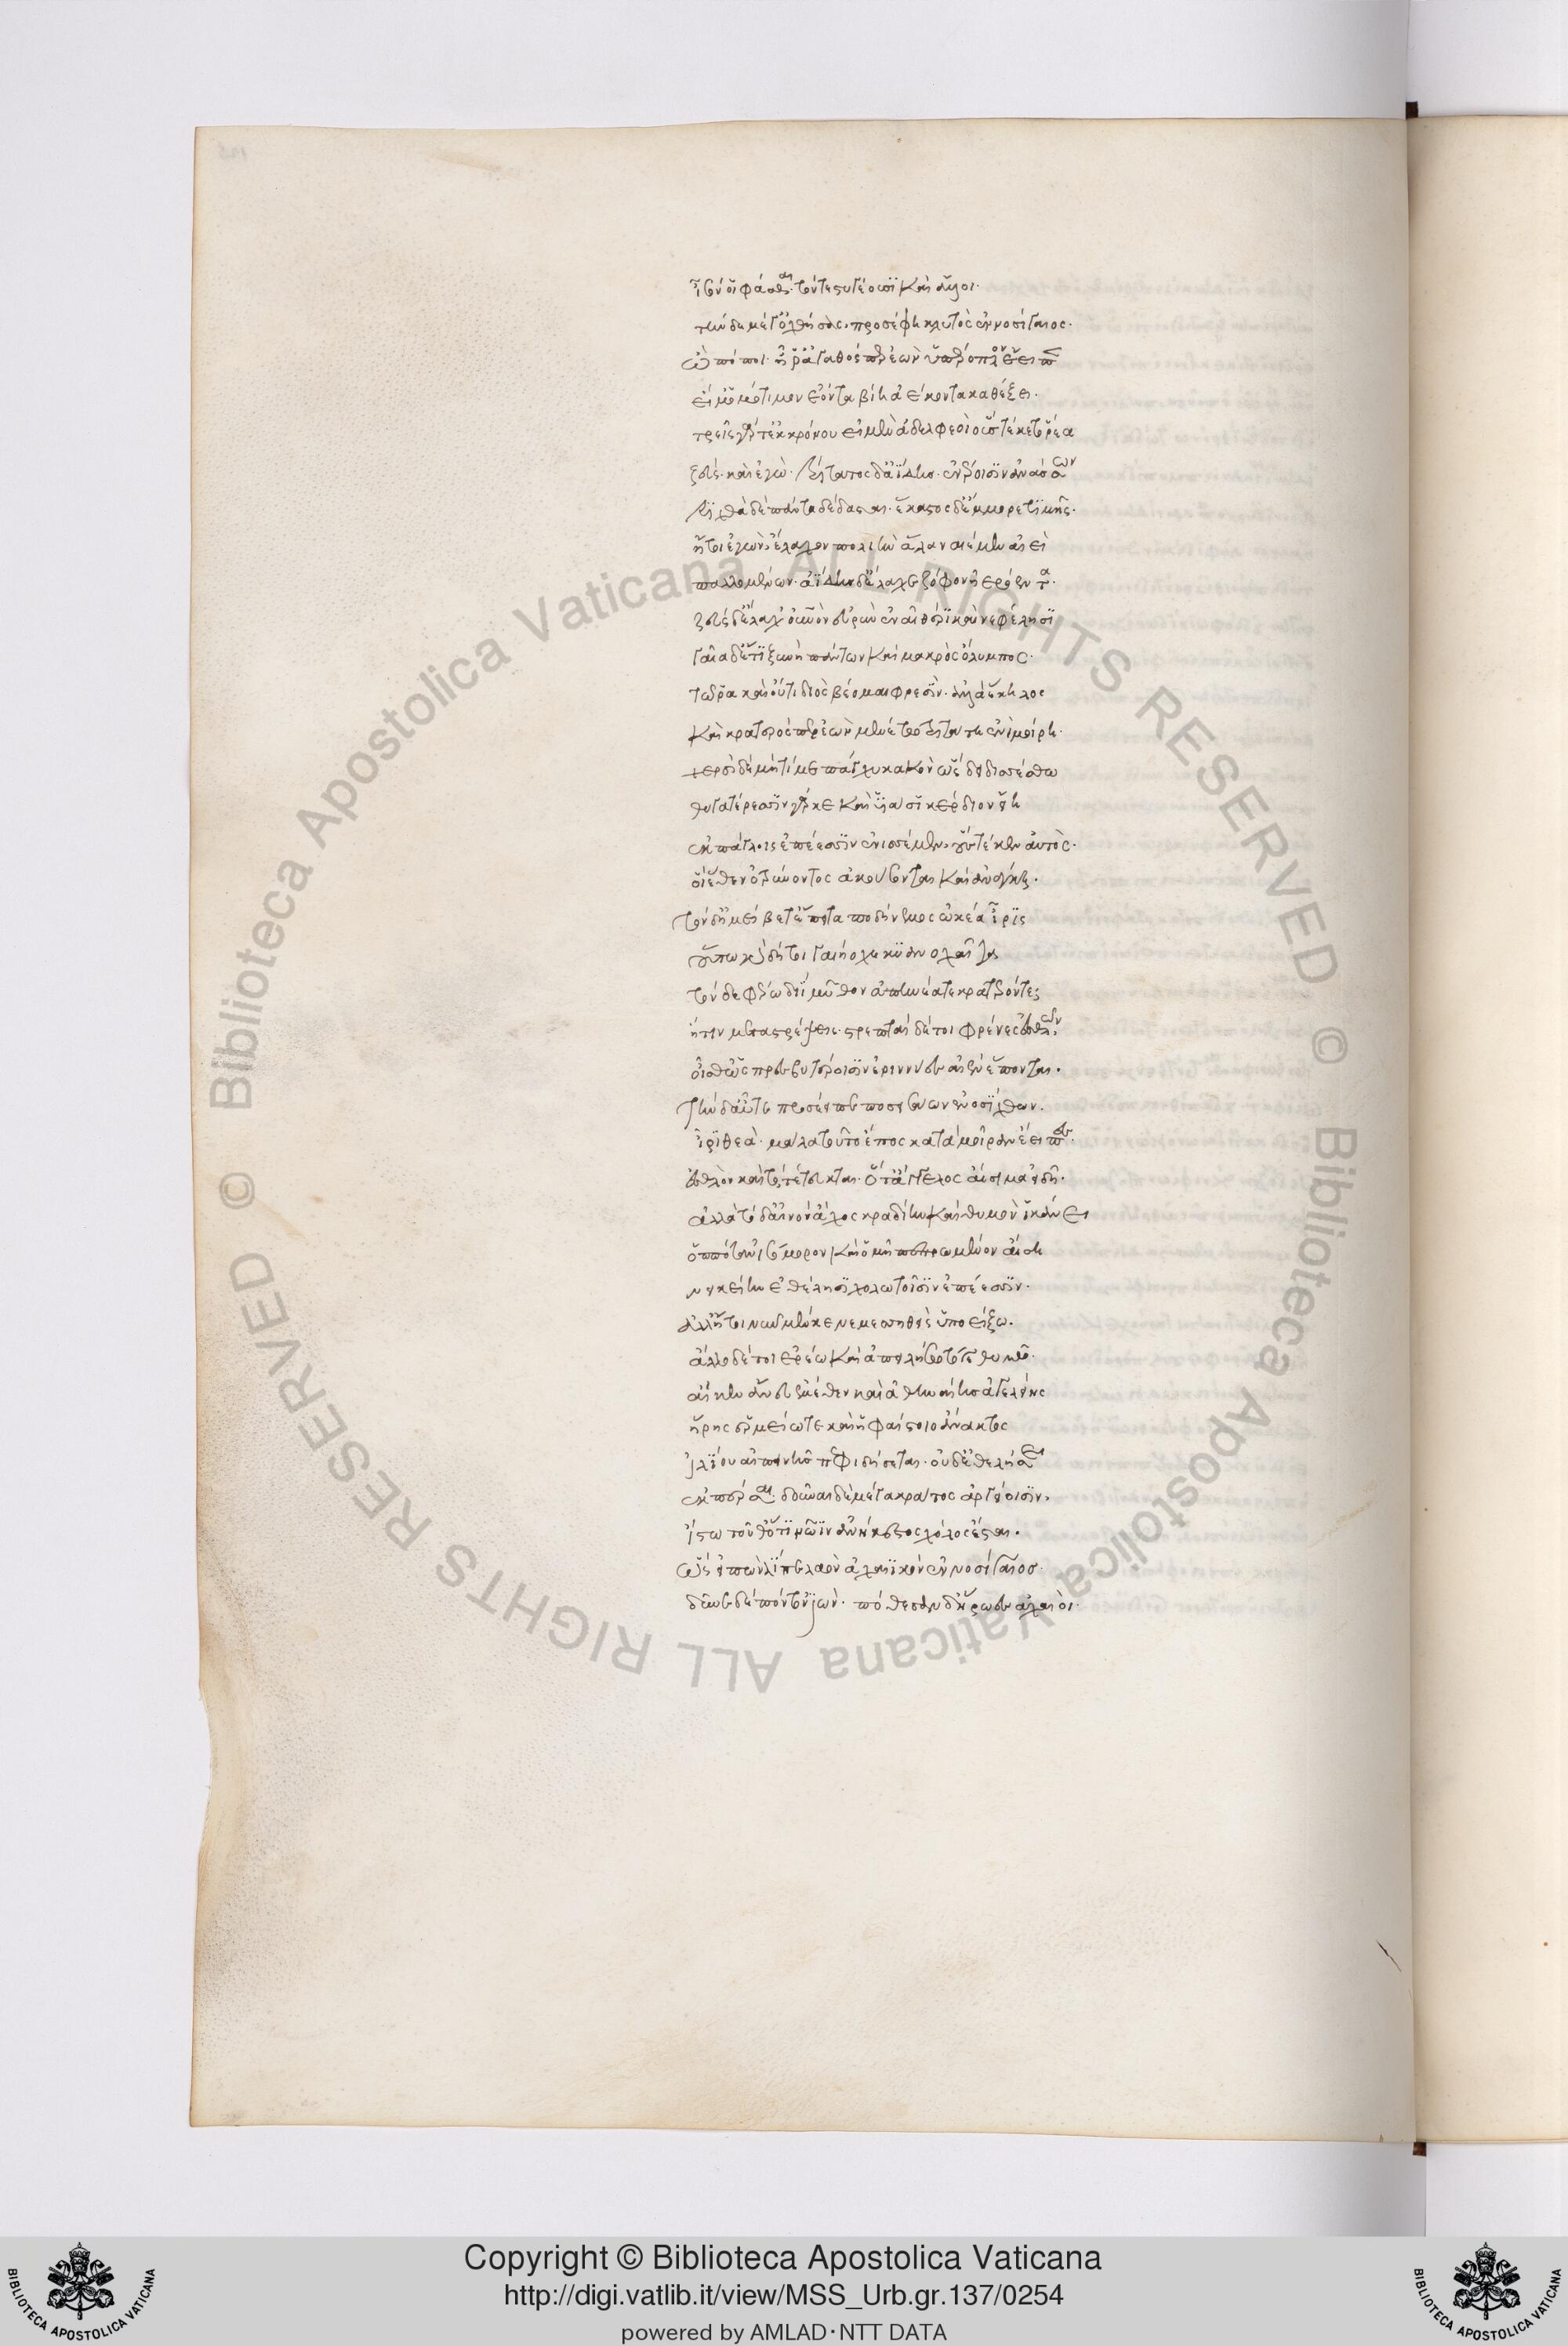 ἶσόν οἱ φάσθαι· τόν τε στυγέουσι καὶ ἄλλοι·
τὴν δὲ μέγ' ὀχθήσας· προσέφη κλυτὸς ἐννοσίγαιος·
ὢ πόποι· ἦ ῥ' ἀγαθός περ ἐὼν ὑπέροπλον ἔειπε
εἴ μ' ὁμότιμον ἐόντα βίη ἀέκοντα καθέξει·
τρεῖς γάρ τ' ἐκ κρόνου εἰμὲν ἀδελφεοὶ οὓς τέκετο ῥέα
ζεύς· καὶ ἐγώ· τρίτατος δ' ἀΐδης· ἐνέροισιν ἀνάσσων
τριχθὰ δὲ πάντα δέδασται· ἕκαστος δ' ἔμμορε τιμῆς·
ἤτοι ἐγὼν ἔλαχον πολιὴν ἅλα ναιέμεν αἰεὶ
παλλομένων· ἀΐδης δ' ἔλαχε ζόφον ἠερόεντα·
ζεὺς δ' ἔλαχ' οὐρανὸν εὐρὺν ἐν αἰθέρι καὶ νεφέλησι
γαῖα δ' ἔτι ξυνὴ πάντων καὶ μακρὸς ὄλυμπος·
τῶ ῥα καὶ οὔτι διὸς βέομαι φρεσίν· ἀλλὰ ἕκηλος
καὶ κρατερός περ ἐὼν μενέτω τριτάτη ἐνὶ μοίρη·
χερσὶ δὲ μήτί με πάγχυ κακὸν ὣς δειδισσέσθω
θυγατέρεσσιν γάρ κε καὶ υἱάσι κέρδιον εἴη
ἐκπάγλοις ἐπέεσσιν ἐνισσέμεν, οὓς τέκεν αὐτός·
οἵ ἕθεν ὀτρύνοντος ἀκούσονται καὶ ἀνάγκη·
τὸν δ' ἠμείβετ' ἔπειτα ποδήνεμος ὠκέα ἶρις
οὕτω γὰρ δή τοι γαιήοχε κυανοχαῖτα
τόν δε φέρω διῒ μῦθον ἀπηνέα τε κρατερόν τε
ἤ τι μεταστρέψεις· στρεπταὶ δέ τοι φρένες ἐσθλῶν
οἶσθ' ὡς πρεσβυτέροισιν ἐριννύες αἰὲν ἕπονται·
τὴν δ' αὖτε προσέειπε ποσειδάων ἐνοσίχθων·
ἶρι θεά· μάλα τοῦτο ἔπος κατὰ μοῖραν ἔειπες·
ἐσθλὸν καὶ τὸ τέτυκται· ὅτ' ἄγγελος αἴσιμα εἰδῆ·
ἀλλὰ τόδ' αἰνὸν ἄχος κραδίην καὶ θυμὸν ἱκάνει
ὁππότ' ἂν ἰσόμορον καὶ ὁμῆ πεπρωμένον αἴση
νεικείειν ἐθέλησι χολωτοῖσιν ἐπέεσσιν·
ἀλλ' ἤτοι νῦν μέν κε νεμεσσηθεὶς ὑποείξω·
ἄλλο δέ τοι ἐρέω καὶ ἀπειλήσω τόγε θυμῶ·
αἴ κεν ἄνευ ἐμέθεν καὶ ἀθηναίης ἀγελείης
ἥρης ἑρμείω τε καὶ ἡφαίστοιο ἄνακτος
ἰλίου αἰπεινῆς πεφιδήσεται· οὐδ' ἐθελήσει
ἐκπέρσαι· δοῦναι δὲ μέγα κράτος ἀργείοισιν,
ἴστω τοῦθ' ὅτι νῶϊν ἀνήκεστος χόλος ἔσται·
ὣς εἰπὼν λίπε λαὸν ἀχαιϊκὸν ἐννοσίγαιος·
δῦνε δὲ πόντον ἰών· πόθεσαν δ' ἥρωες ἀχαιοί·
Copyright © Biblioteca Apostolica Vaticana
http://digi.vatlib.it/view/MSS_Urb.gr.137/0254
powered by AMLAD·NTT DATA
BIBLIOTECA APOSTOLICA VATICANA
BIBLIOTECA APOSTOLICA VATICANA
© Biblioteca Apostolica Vaticana ALL RIGHTS RESERVED
© Biblioteca Apostolica Vaticana ALL RIGHTS RESERVED